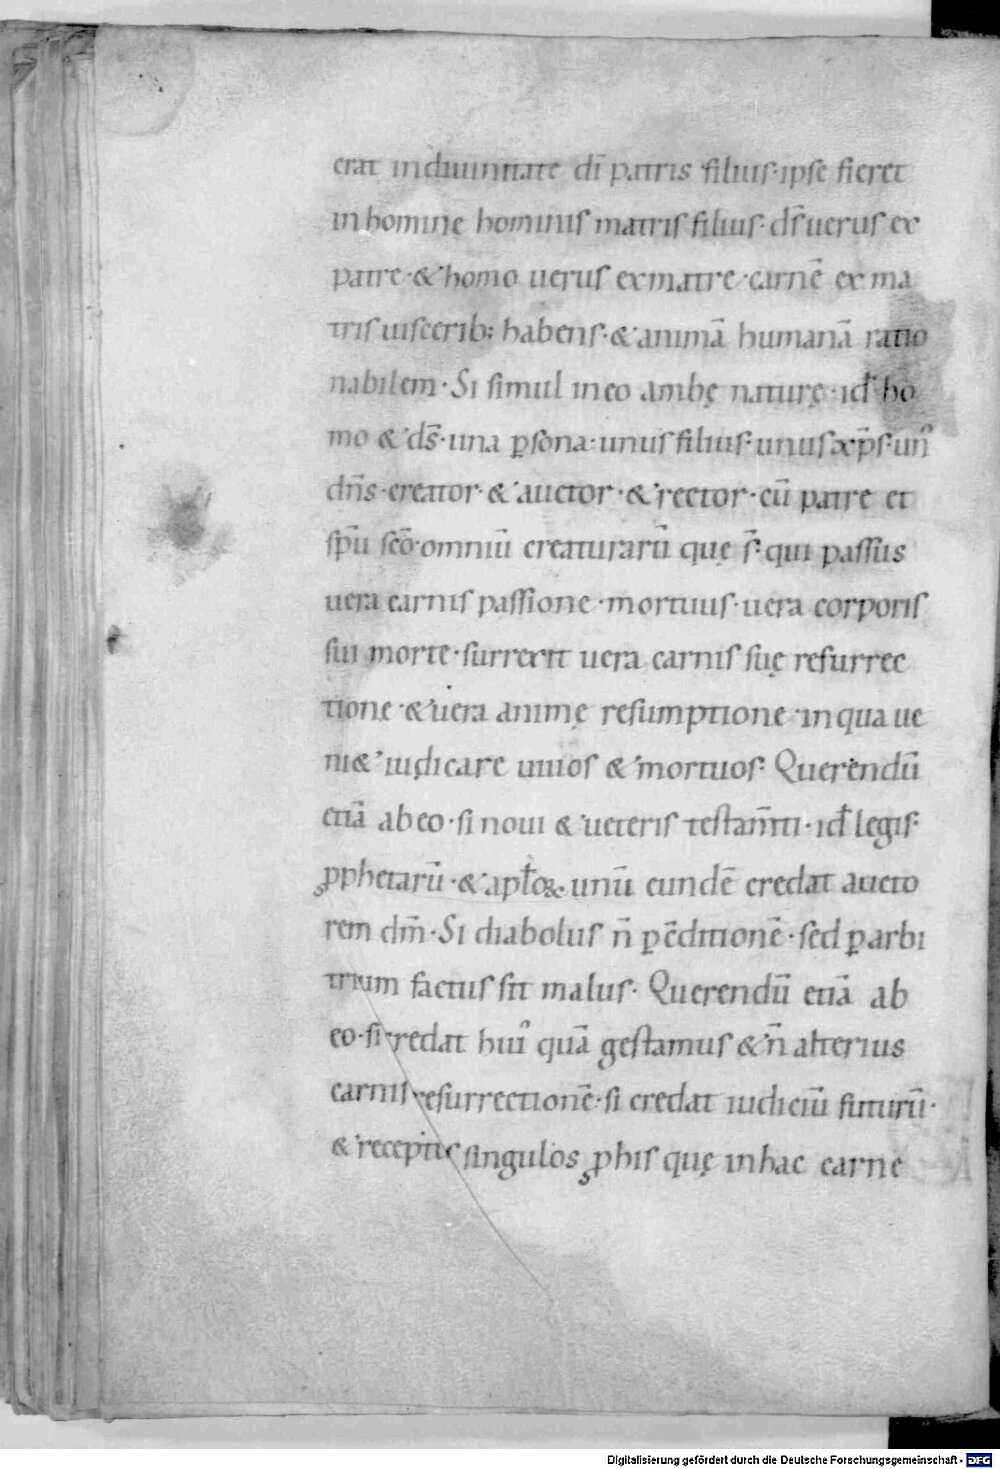 erat indiuinitate dī patris filius· ipse fieret
in homine hominis matris filius· dſ̄ uerus ex
patre· & homo uerus exmatre· carnē ex ma
tris uiscerib; habens· & animā humanā ratio
nabilem· Si simul ineo ambę naturę· id̄ ho
mo & dſ̄· una ꝑsona· unus filius· unus xp̄s· un᾽
dn̄s· creator· & auctor· & rector· cū patre et
sp̄u sc̄o· omniū creaturarū quę s̄· qui passus
uera carnis passione· mortuus· uera corporis
sui morte· surrexit uera carnis suę resurrec
tione· & uera animę resumptione· inqua ue
ni& iudicare uiuos & mortuos· Querendū
etiā abeo· si noui & ueteris testam̄ti· id̄ legis·
ꝓphetarū· & apl̄oꝝ· unū eundē credat aucto
rem dm̄· Si diabolus n̄ ꝑ c̄ditionē· sed ꝑ arbi
trium factus sit malus· Querendū etiā ab
eo· si credat hui᾽ quā gestamus & n̄ alterius
carnis resurrectionē· si credat iudiciū futurū·
& recepturos singulos ꝓ his quę inhac carne
Digitalisierung gefördert durch die Deutsche Forschungsgemeinschaft - DFG